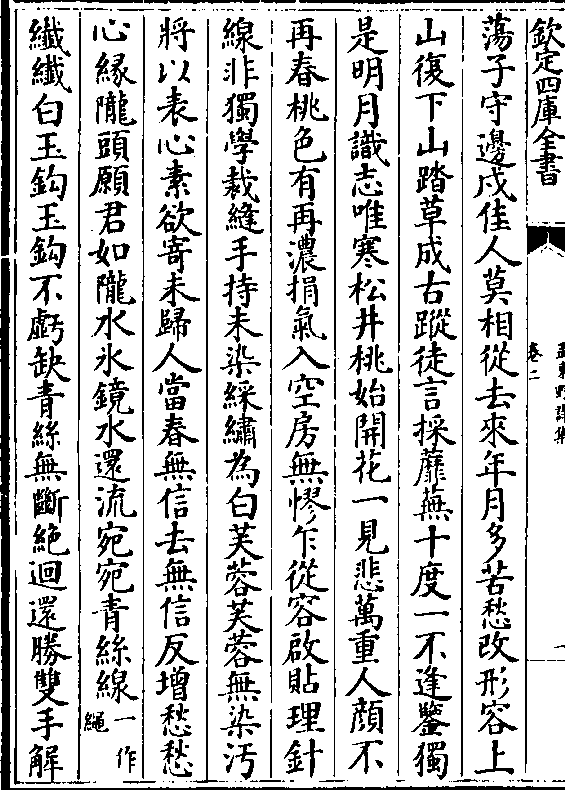 欽定四庫全書
孟東野詩集
卷二
一
蕩子守邊戍佳人莫相從去來年月多苦愁改形容上
山復下山踏草成古蹤徒言採蘼蕪十度一不逢鑒獨
是明月識志唯寒松井桃始開花一見悲萬重人顔不
再春桃色有再濃捐氣入空房無憀乍從容啟貼理針
線非獨學裁縫手持未染綵繡為白芙蓉芙蓉無染汚
將以表心素欲寄未歸人當春無信去無信反增愁愁
心緣隴頭願君如隴水氷鏡水還流宛宛青絲線一作繩
纖纖白玉鈎玉鈎不虧缺青絲無斷絶迴還勝雙手解